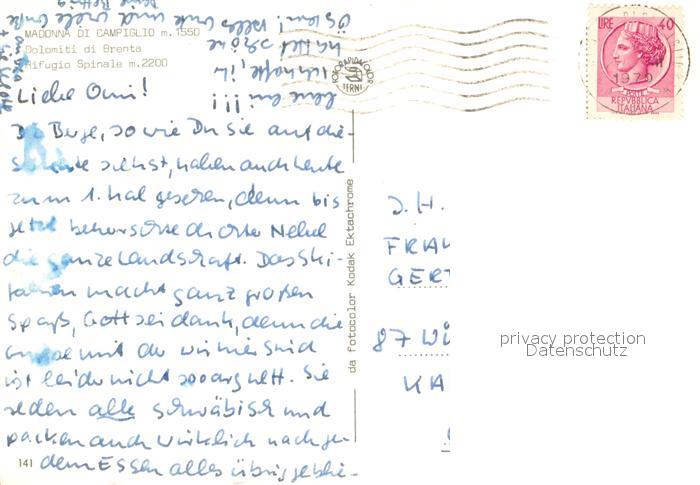 MADONNA DI CAMPIGLIO m.1550
Dolomiti di Brenta
Rifugio Spinale m.2200
Liebe Omi!
Die Berge, so wie Du sie auf die-
ser Karte siehst, haben auch heute
zum 1. Mal gesehen, denn bis
jetzt beherrschte dichter Nebel
die ganze Landschaft. Das Ski-
fahren macht ganz großen
Spaß, Gott sei dank, denn die
mit der wir hier sind
ist leider nicht soo arg nett. Sie
reden alle schwäbisch und
packen auch wirklich nach je-
dem Essen alles übriggeblie-
bene ein!!!
Ich hoffe, ihr
hattet schöne
Ostern!
141
da fotocolor Kodak Ektachrome
FOTORAPIDACOLOR
TERNI
LIRE 40
REPVBBLICA
ITALIANA
1970
J.H.
FRAU
GERT
87 WÜ
KA
privacy protection
Datenschutz